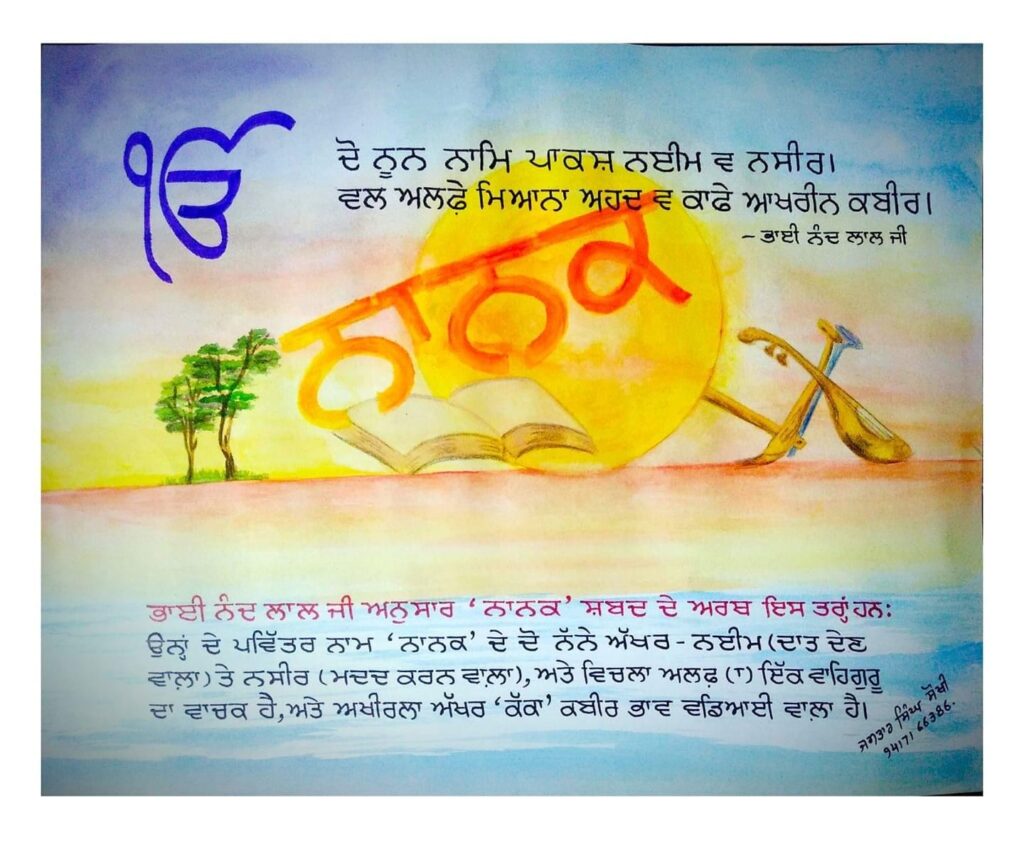 ੴ
ਦੋ ਨੂਨ ਨਾਮਿ ਪਾਕਸ਼ ਨਈਮ ਵ ਨਸੀਰ।
ਵਲ ਅਲਫ਼ੇ ਮਿਆਨਾ ਅਹਦ ਵ ਕਾਫੇ ਆਖਰੀਨ ਕਬੀਰ।
- ਭਾਈ ਨੰਦ ਲਾਲ ਜੀ
ਨਾਨਕ
ਭਾਈ ਨੰਦ ਲਾਲ ਜੀ ਅਨੁਸਾਰ ‘ਨਾਨਕ’ ਸ਼ਬਦ ਦੇ ਅਰਥ ਇਸ ਤਰ੍ਹਾਂ ਹਨ:
ਉਨ੍ਹਾਂ ਦੇ ਪਵਿੱਤਰ ਨਾਮ ‘ਨਾਨਕ’ ਦੇ ਦੋ ਨੱਨੇ ਅੱਖਰ - ਨਈਮ (ਦਾਤ ਦੇਣ
ਵਾਲ਼ਾ) ਤੇ ਨਸੀਰ (ਮਦਦ ਕਰਨ ਵਾਲ਼ਾ), ਅਤੇ ਵਿਚਲਾ ਅਲਫ਼ (ਾ) ਇੱਕ ਵਾਹਿਗੁਰੂ
ਦਾ ਵਾਚਕ ਹੈ, ਅਤੇ ਅਖੀਰਲਾ ਅੱਖਰ ‘ਕੱਕਾ’ ਕਬੀਰ ਭਾਵ ਵਡਿਆਈ ਵਾਲ਼ਾ ਹੈ।
ਜਗਤਾਰ ਸਿੰਘ ਸੋਖੀ
94171 66386.